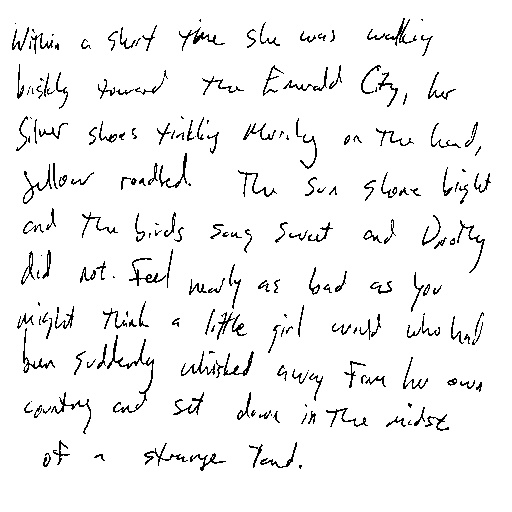 Within a short time she was walking
briskly toward the Emerald City, her
Silver shoes tinkling merrily on the hard,
yellow roadbed. The sun shone bright
and the birds sang sweet and Dorothy
did not. Feel nearly as bad as you
might think a little girl would who had
been suddenly whisked away from her own
country and set down in the midst
of a strange land.